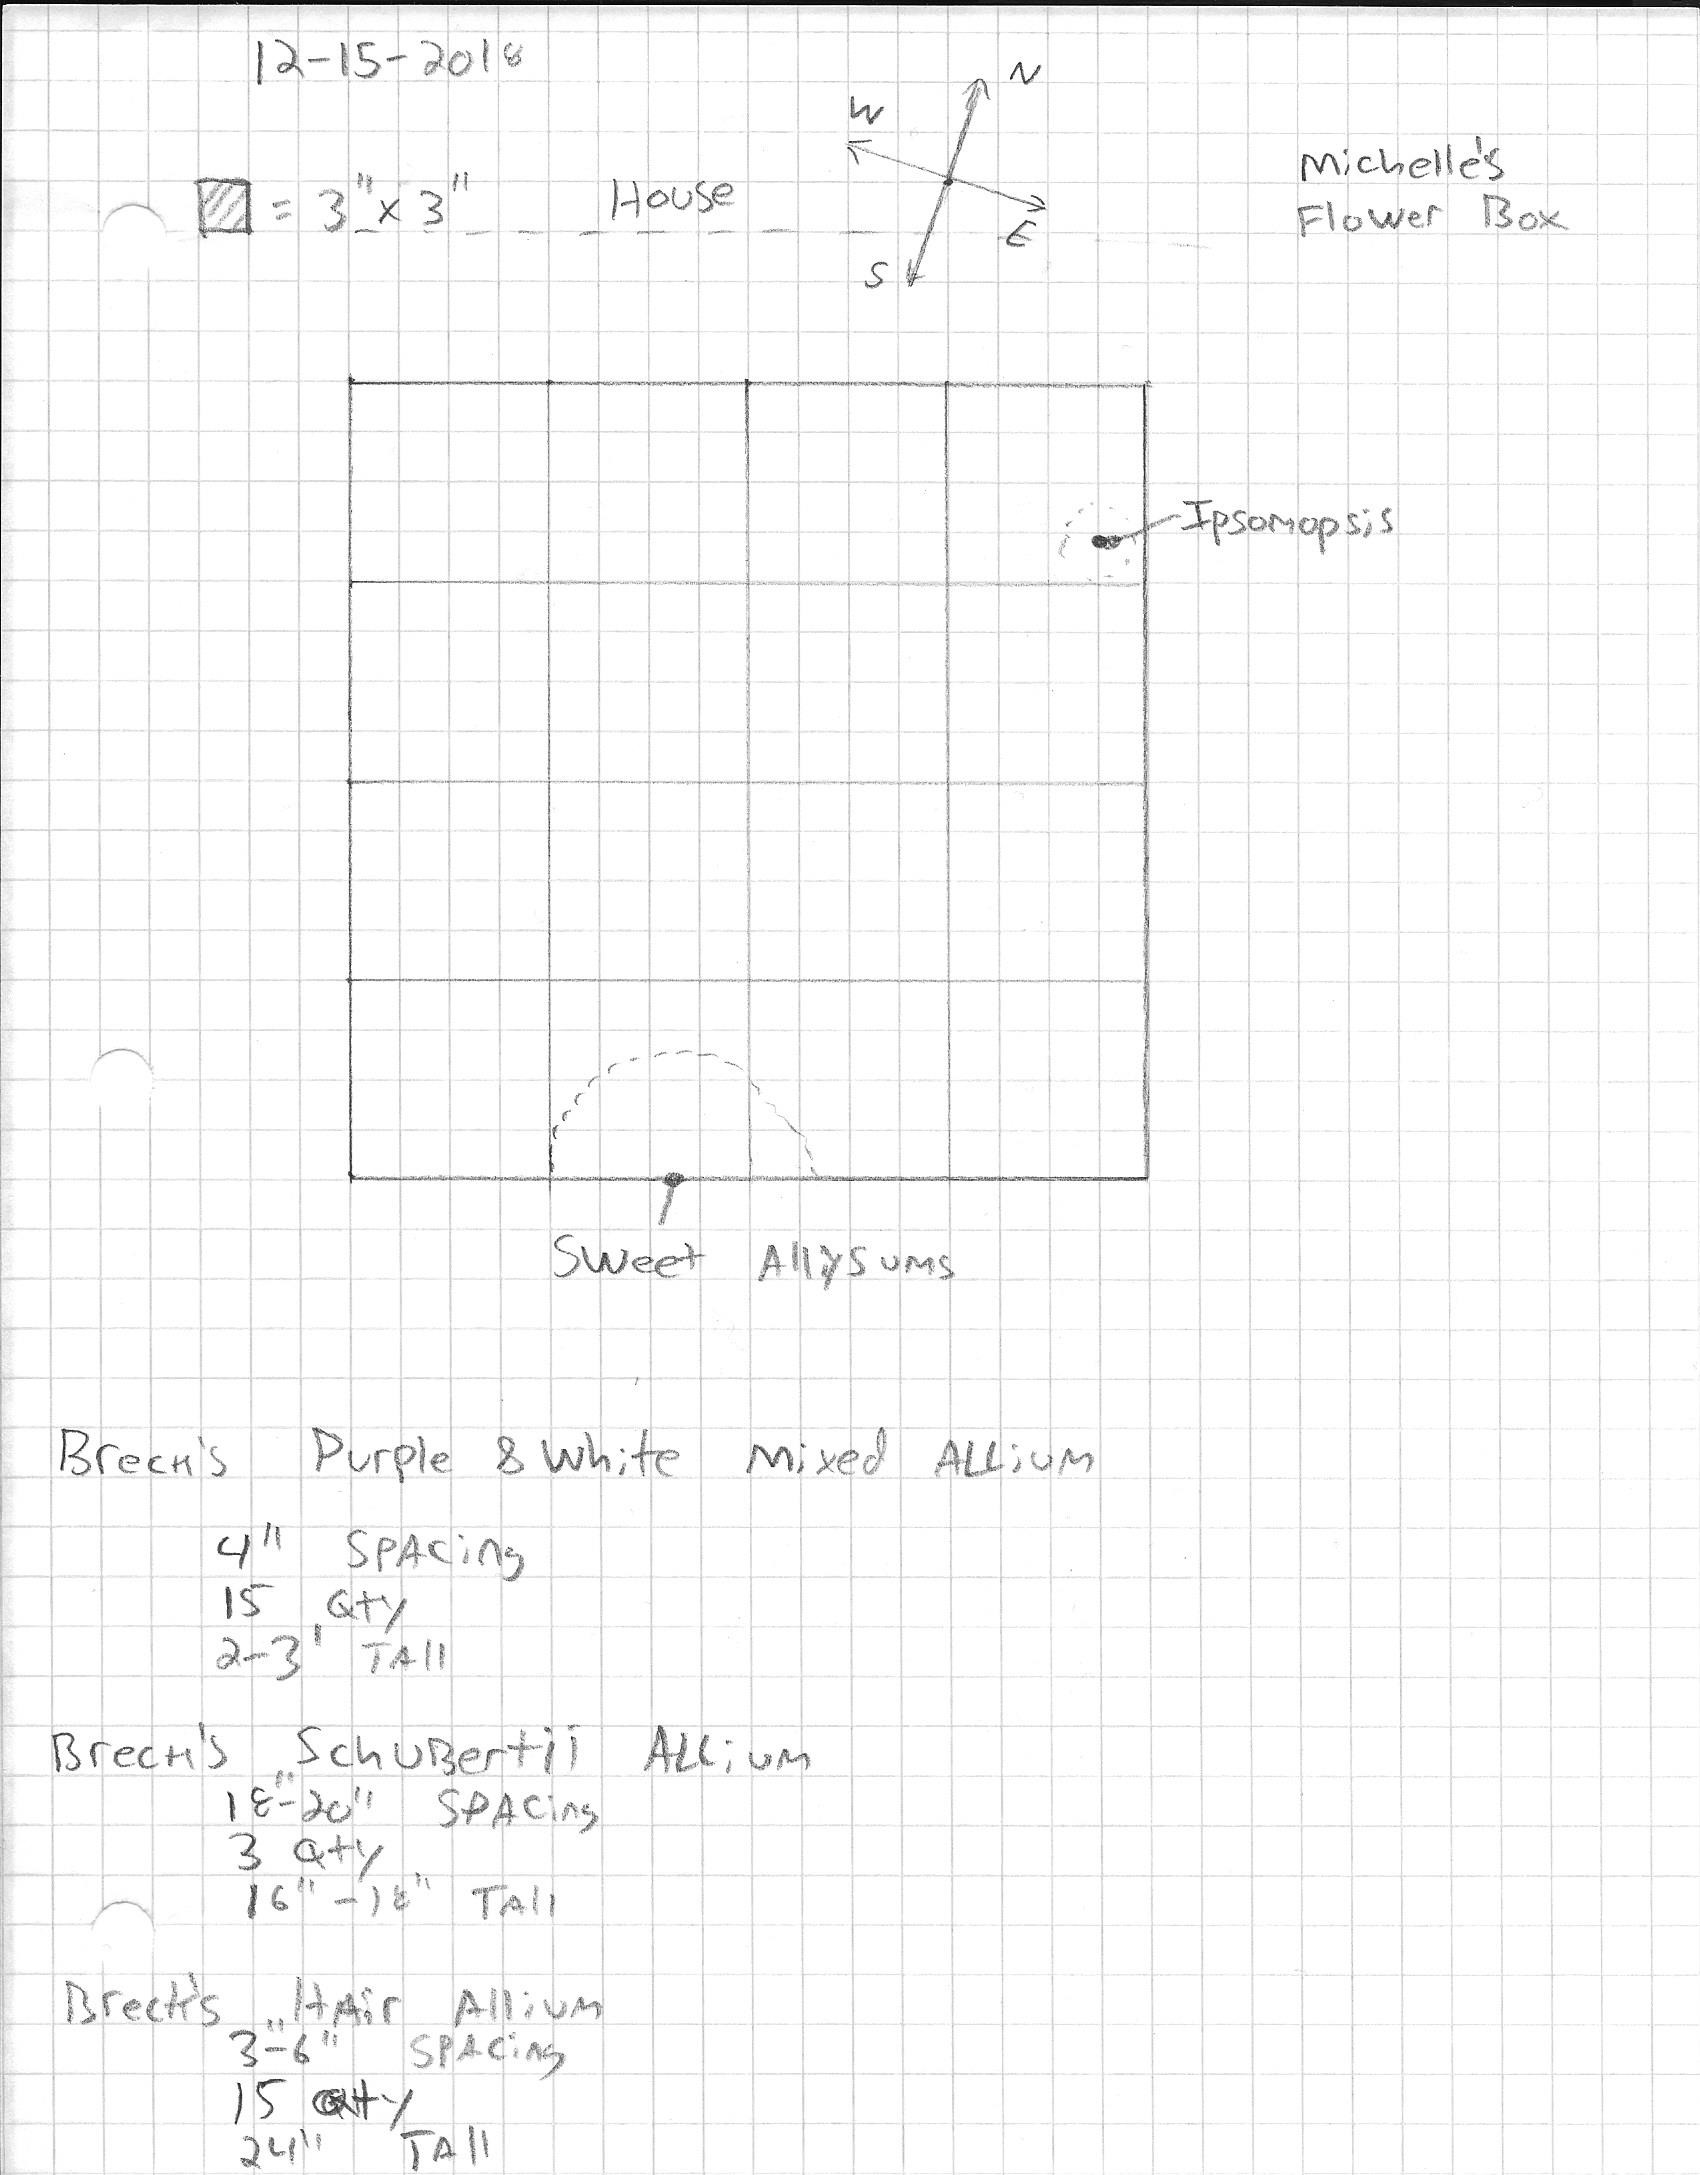 12-15-2018
N
W
= 3" x 3" House
E
S
Michelle's
Flower Box
Ipsomopsis
Sweet Allysums
Breck's Purple & White Mixed Allium
4" Spacing
15 Qty
2-3' Tall
Breck's Schubertii Allium
18"-20" Spacing
3 Qty
16"-18" Tall
Breck's Hair Allium
3"-6" Spacing
15 Qty
24" Tall